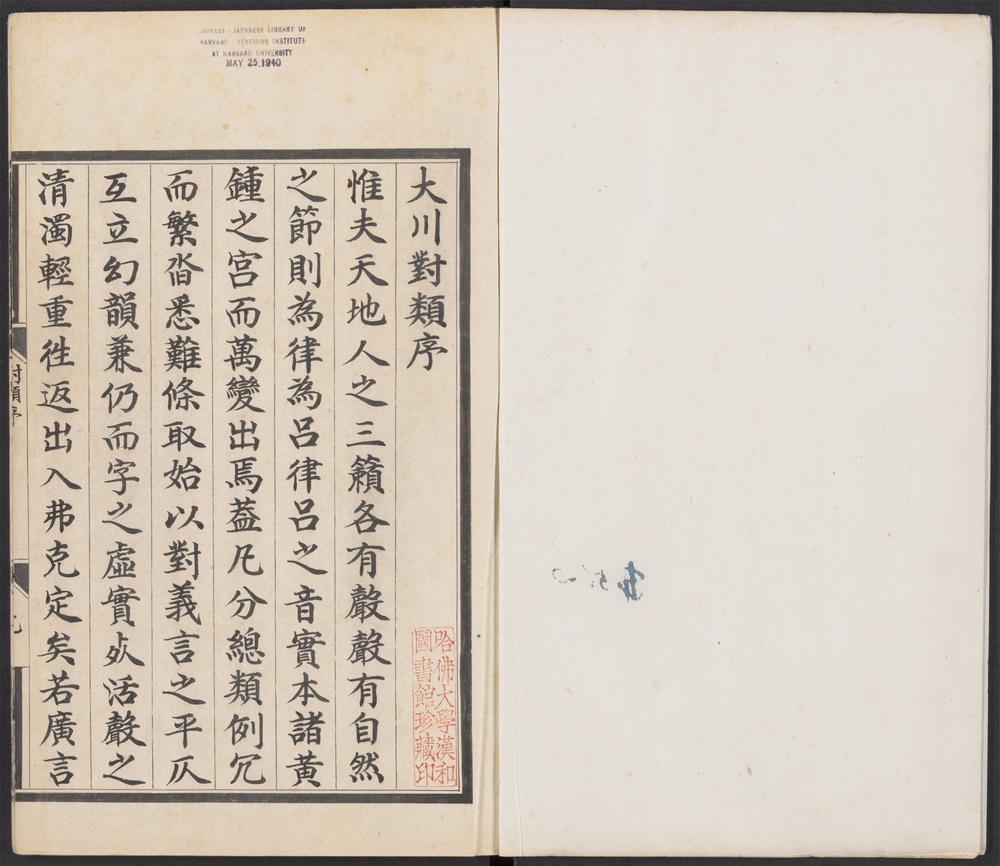 CHINESE - JAPANESE LIBRARY OF
HARVARD - YENCHING INSTITUTE
AT HARVARD UNIVERSITY
MAY 25 1940
大川對類序
惟夫天地人之三籟各有聲聲有自然
之節則為律為呂律呂之音實本諸黃
鍾之宮而萬變出焉葢凡分總類例冗
而繁沓悉難條取始以對義言之平仄
互立幻韻兼仍而字之虛實𣦸活聲之
清濁輕重徃返出入弗克定矣若廣言
哈佛大學漢和
圖書館珍藏印
對類序